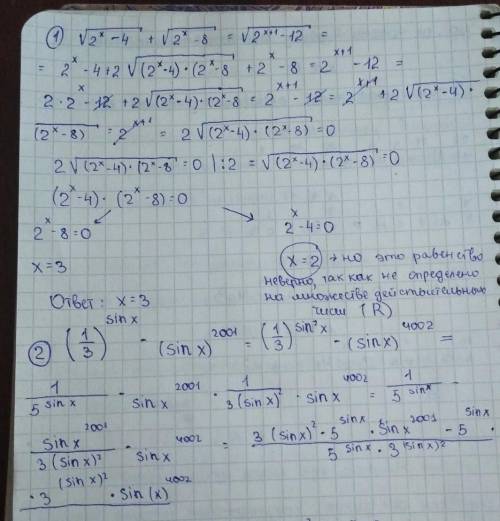 ① √(2^x-4) + √(2^x-8) = √(2^(x+1)-12) =
= 2^x-4+2√((2^x-4)·(2^x-8) + 2^x-8 = 2^(x+1)-12 =
2·2^x-12+2√((2^x-4)·(2^x-8) = 2^(x+1)-12 = 2^(x+1)+2√((2^x-4)·
(2^x-8) = 2^(x+1) = 2√((2^x-4)·(2^x-8)) = 0
2√((2^x-4)·(2^x-8) = 0 |:2 = √((2^x-4)·(2^x-8)) = 0
(2^x-4)·(2^x-8)=0
2^x-8=0 2^x-4=0
x=3 x=2 → но это равенство
неверно, так как не определено
Ответ: x=3 на множестве действительных
чисел (R)
② (1/3)^(sin x) - (sin x)^2001 = (1/3)^(sin²x) - (sin x)^4002 =
1/5^(sin x) - sin x^2001 · 1/3(sin x)² · sin x^4002 = 1/5^(sin x) -
sin x^2001/3(sin x)² · sin x^4002 = 3(sin x)²·5^(sin x)·sin x^2001-5^(sin x)·/5^(sin x)·3^(sin x)²
·3^(sin x)²·sin(x)^4002